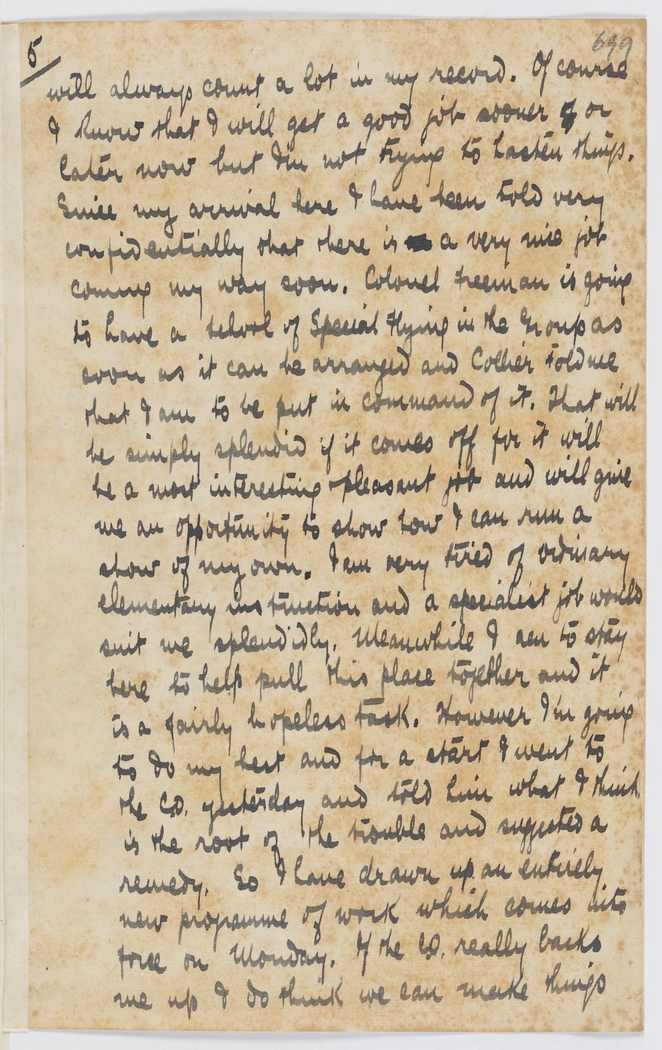 5
699
will always count a lot in my record. Of course
I know that I will get a good job sooner or
later now but I'm not trying to hasten things.
Since my arrival here I have been told very
confidentially that there is a very nice job
coming my way soon. Colonel Freeman is going
to have a school of Special Flying in the Group as
soon as it can be arranged and Collier told me
that I am to be put in command of it. That will
be simply splendid if it comes off for it will
be a most interesting & pleasant job and will give
me an opportunity to show how I can run a
show of my own. I am very tired of ordinary
elementary instruction and a specialist job would
suit me splendidly. Meanwhile I am to stay
here to help pull this place together and it
is a fairly hopeless task. However I'm going
to do my best and for a start I went to
the C.O. yesterday and told him what I think
is the root of the trouble and suggested a
remedy. So I have drawn up an entirely
new programme of work which comes into
force on Monday. If the C.O. really backs
me up I do think we can make things